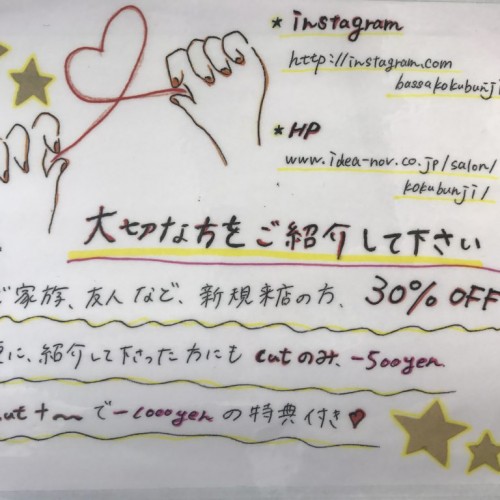 * instagram
http://instagram.com
bassakokubunji
* HP
www.idea-nov.co.jp/salon/
kokubunji/
大切な方をご紹介して下さい
ご家族、友人など、新規来店の方、30% OFF
更に、紹介して下さった方にも cutのみ、-500yen
cut+〜で-1000yenの特典付き♥